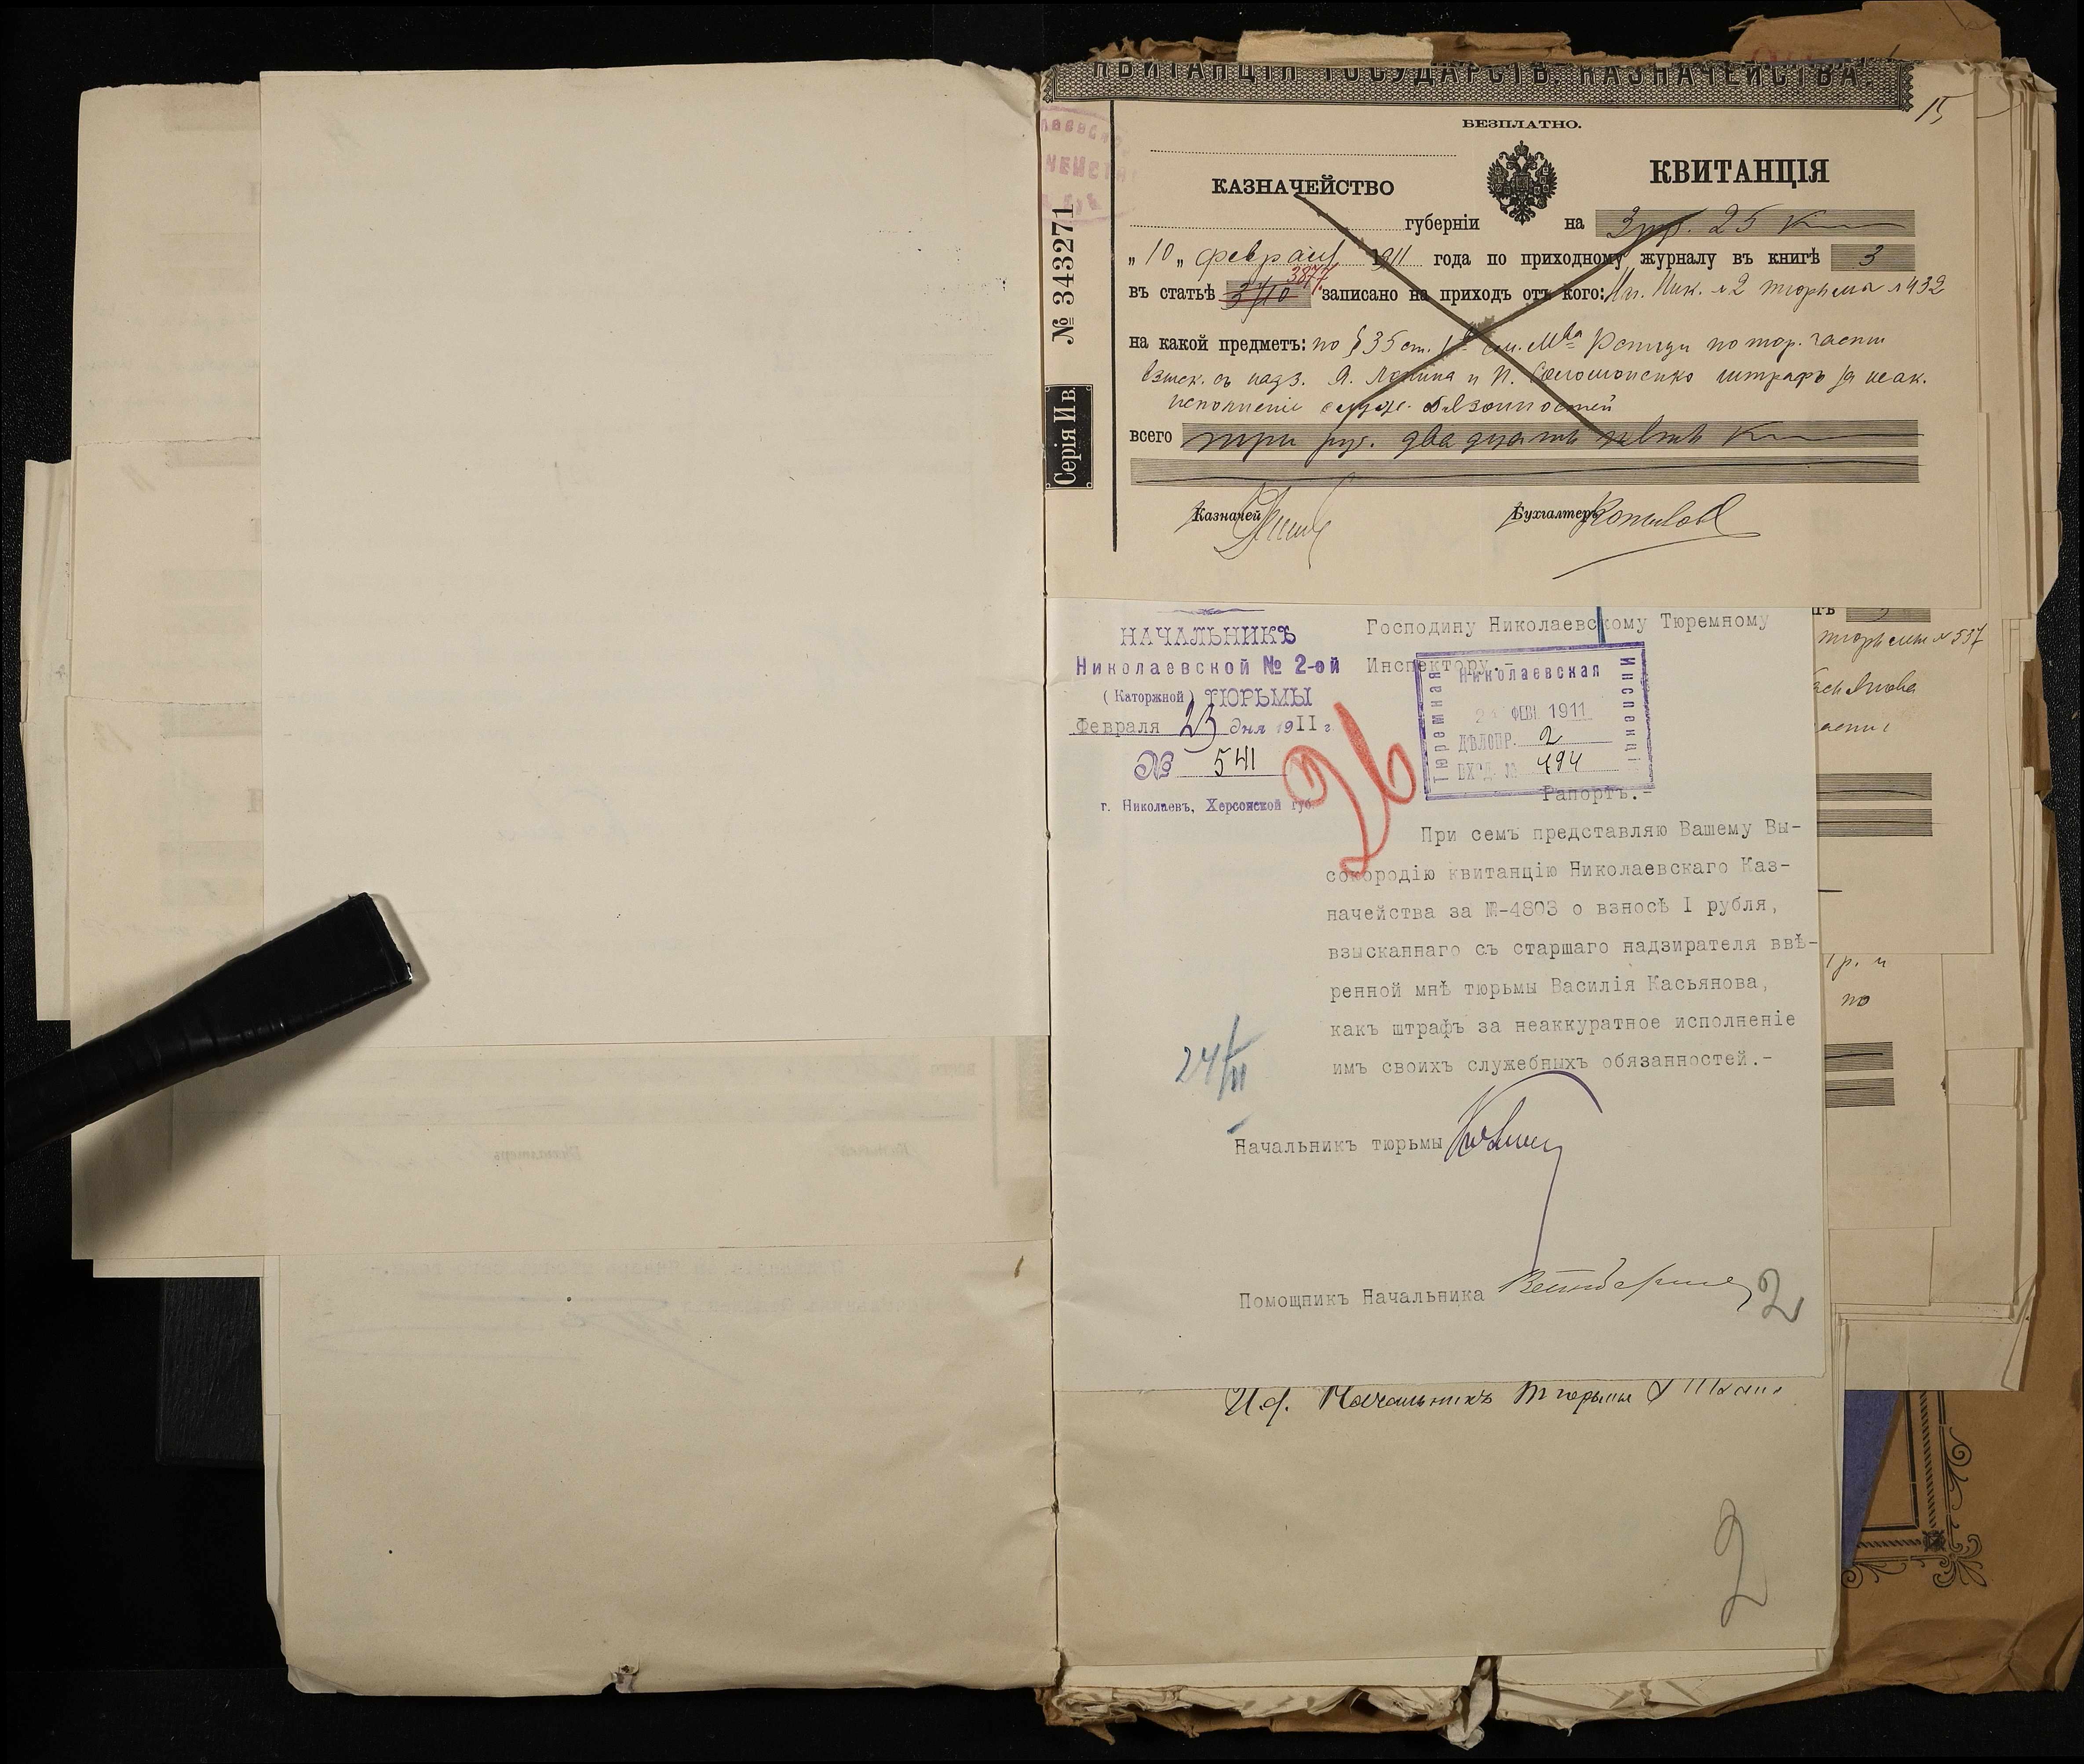 КВИТАНЦІЯ ГОСУДАРСТВ. КАЗНАЧЕЙСТВА.
15
БЕЗПЛАТНО.
КАЗНАЧЕЙСТВО
КВИТАНЦІЯ
губерніи на 3 руб. 25 к
„ 10 „ февраля 1911 года по приходному журналу въ книгѣ 3
3877
въ статьѣ 3710 записано на приходъ отъ кого: Нач. Ник. № 2 тюрьма № 432
на какой предметъ: по § 35 ст. 1 см. М-ва Юстиціи по тюр. части
взыск. съ надз. А. и И. Соломоненко штрафъ за неак.
исполненіе служ. обязанностей
всего три руб. двадцать пять к
Казначей
Бухгалтеръ
№ 343271
Серія И в.
НАЧАЛЬНИКЪ
Николаевской № 2-ой
(Каторжной) ТЮРЬМЫ
Февраля 23 дня 1911 г.
№ 541
г. Николаевъ, Херсонской губ.
Господину Николаевскому Тюремному
Инспектору.-
Николаевская
Тюремная
Инспекція
ФЕВ 1911
ДѢЛОПР. 2
ВХОД. № 494
26
Рапортъ.-
При семъ представляю Вашему Вы-
сокородію квитанцію Николаевскаго Каз-
начейства за №-4803 о взносѣ I рубля,
взысканнаго съ старшаго надзирателя ввѣ-
ренной мнѣ тюрьмы Василія Касьянова,
какъ штрафъ за неаккуратное исполненіе
имъ своихъ служебныхъ обязанностей.-
24/II
Начальникъ тюрьмы
Помощникъ Начальника
2
И.д. Начальникъ Тюрьмы
2
тюрьмы № 537
Касьянова
части
1 р. и
по